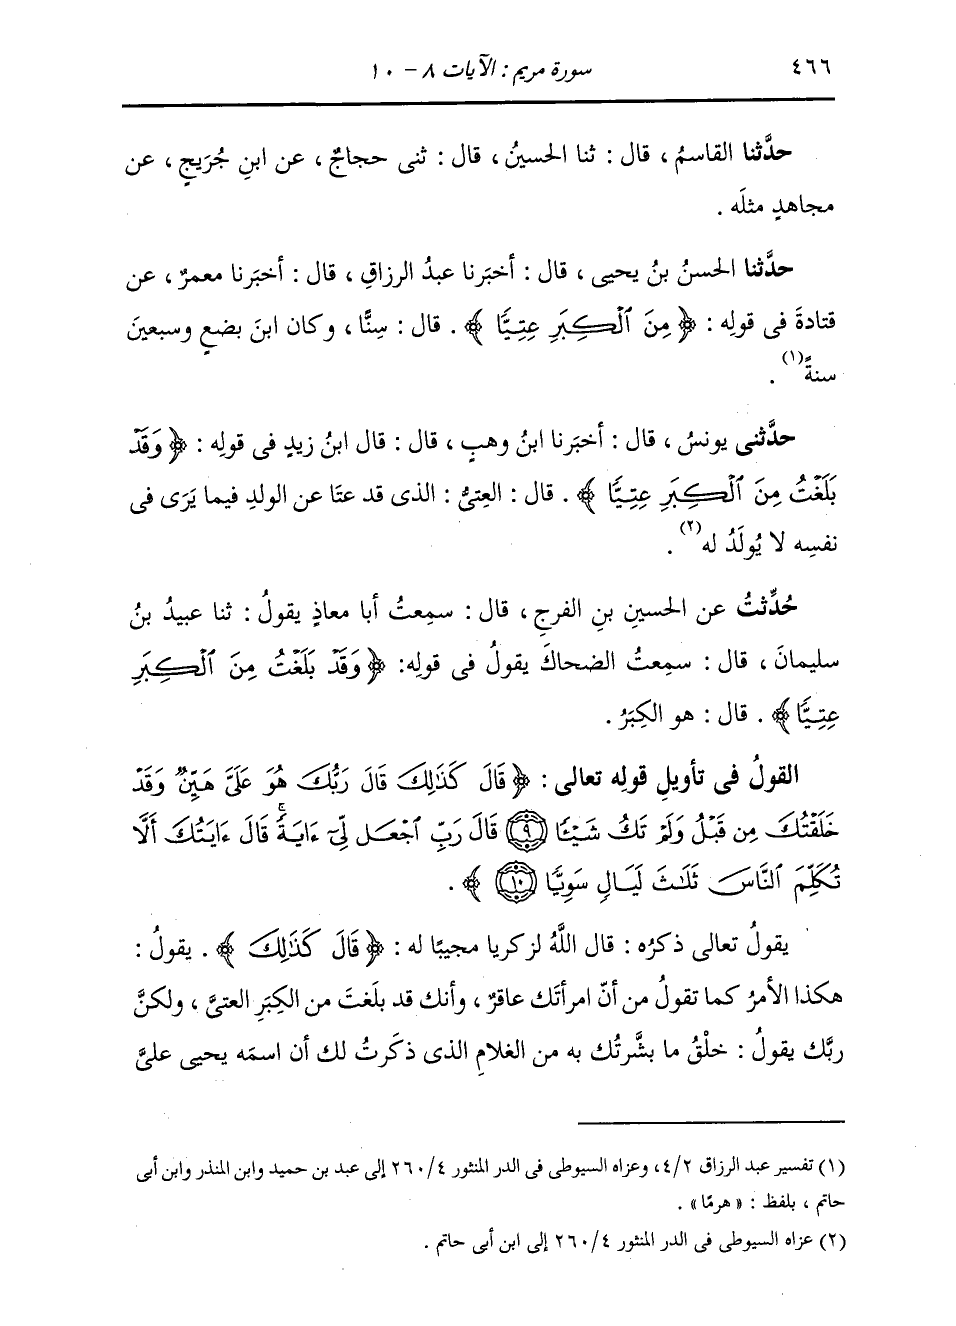 ٤٦٦ سورة مريم : الآيات ٨ - ١٠
حدَّثنا القاسمُ ، قال : ثنا الحسينُ ، قال : ثنى حجاجٌ ، عن ابنِ جُرَيجٍ ، عن
مجاهدٍ مثلَه .
حدَّثنا الحسنُ بنُ يحيى ، قال : أخبَرنا عبدُ الرزاقِ ، قال : أخبَرنا معمرٌ ، عن
قتادةَ فى قولِه : ﴿ مِنَ ٱلْكِبَرِ عِتِيًّا ﴾ . قال : سِنًّا ، وكان ابنَ بضعٍ وسبعينَ
سنةً(١) .
حدَّثنى يونسُ ، قال : أخبَرنا ابنُ وهبٍ ، قال : قال ابنُ زيدٍ فى قولِه : ﴿ وَقَدْ
بَلَغْتُ مِنَ ٱلْكِبَرِ عِتِيًّا ﴾ . قال : العِتِىُّ : الذى قد عتَا عن الولدِ فيما يَرَى فى
نفسِه لا يُولَدُ له(٢) .
حُدِّثتُ عن الحسينِ بنِ الفرجِ ، قال : سمِعتُ أبا معاذٍ يقولُ : ثنا عبيدُ بنُ
سليمانَ ، قال : سمِعتُ الضحاكَ يقولُ فى قولِه: ﴿ وَقَدْ بَلَغْتُ مِنَ ٱلْكِبَرِ
عِتِيًّا ﴾ . قال : هو الكِبَرُ .
القولُ فى تأويلِ قولِه تعالى : ﴿ قَالَ كَذَٰلِكَ قَالَ رَبُّكَ هُوَ عَلَىَّ هَيِّنٌ وَقَدْ
خَلَقْتُكَ مِن قَبْلُ وَلَمْ تَكُ شَيْـًٔا ٩ قَالَ رَبِّ ٱجْعَل لِّىٓ ءَايَةً ۚ قَالَ ءَايَتُكَ أَلَّا
تُكَلِّمَ ٱلنَّاسَ ثَلَٰثَ لَيَالٍ سَوِيًّا ١٠ ﴾ .
يقولُ تعالى ذكرُه : قال اللَّهُ لزكريا مجيبًا له : ﴿ قَالَ كَذَٰلِكَ ﴾ . يقولُ :
هكذا الأمرُ كما تقولُ من أنّ امرأتَك عاقرٌ ، وأنك قد بلَغتَ من الكِبَرِ العتىَّ ، ولكنَّ
ربَّك يقولُ : خلْقُ ما بشَّرتُك به من الغلامِ الذى ذكَرتُ لك أن اسمَه يحيى علىَّ
(١) تفسير عبد الرزاق ٤/٢، وعزاه السيوطى فى الدر المنثور ٢٦٠/٤ إلى عبد بن حميد وابن المنذر وابن أبى
حاتم ، بلفظ : « هرمًا » .
(٢) عزاه السيوطى فى الدر المنثور ٢٦٠/٤ إلى ابن أبى حاتم .